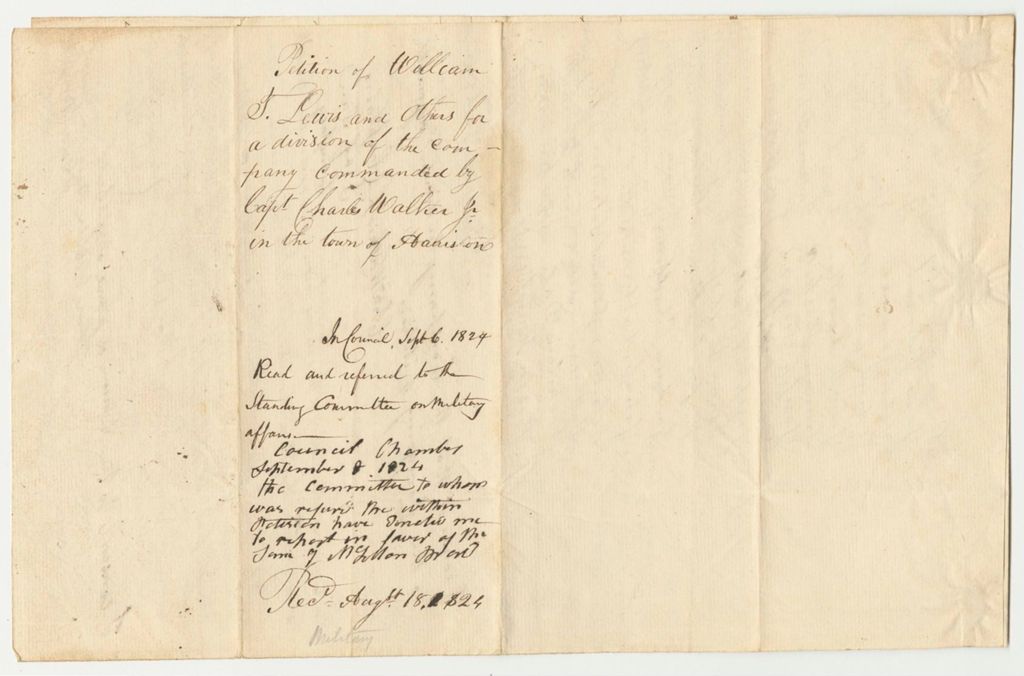 Petition of William
T. Lewis and Others for
a division of the com-
pany commanded by
Capt Charles Walker Jr
in the town of Harrison
In Council, Sept 6. 1824
Read and referred to the
Standing Committee on Military
affairs
Council Chamber
September 8 1824
the Committee to whom
was refurd the within
Petition have
to report in favor of the
Same
Recd Augst 18, 1824
Military